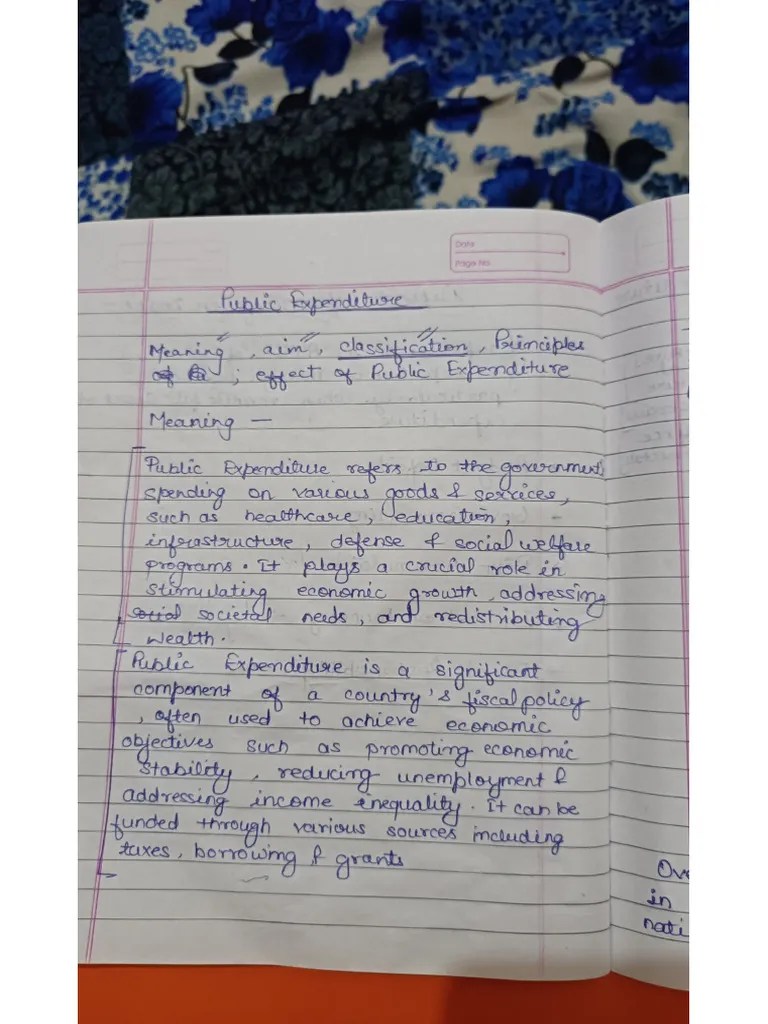 Date
Page No.
Public Expenditure
Meaning, aim, classification, Principles
of ; effect of Public Expenditure
Meaning —
Public Expenditure refers to the government's
spending on various goods & services,
such as healthcare, education,
infrastructure, defense & social welfare
programs. It plays a crucial role in
stimulating economic growth, addressing
social societal needs, and redistributing
wealth.
Public Expenditure is a significant
component of a country's fiscal policy
, often used to achieve economic
objectives such as promoting economic
stability, reducing unemployment &
addressing income inequality. It can be
funded through various sources including
taxes, borrowing & grants
in